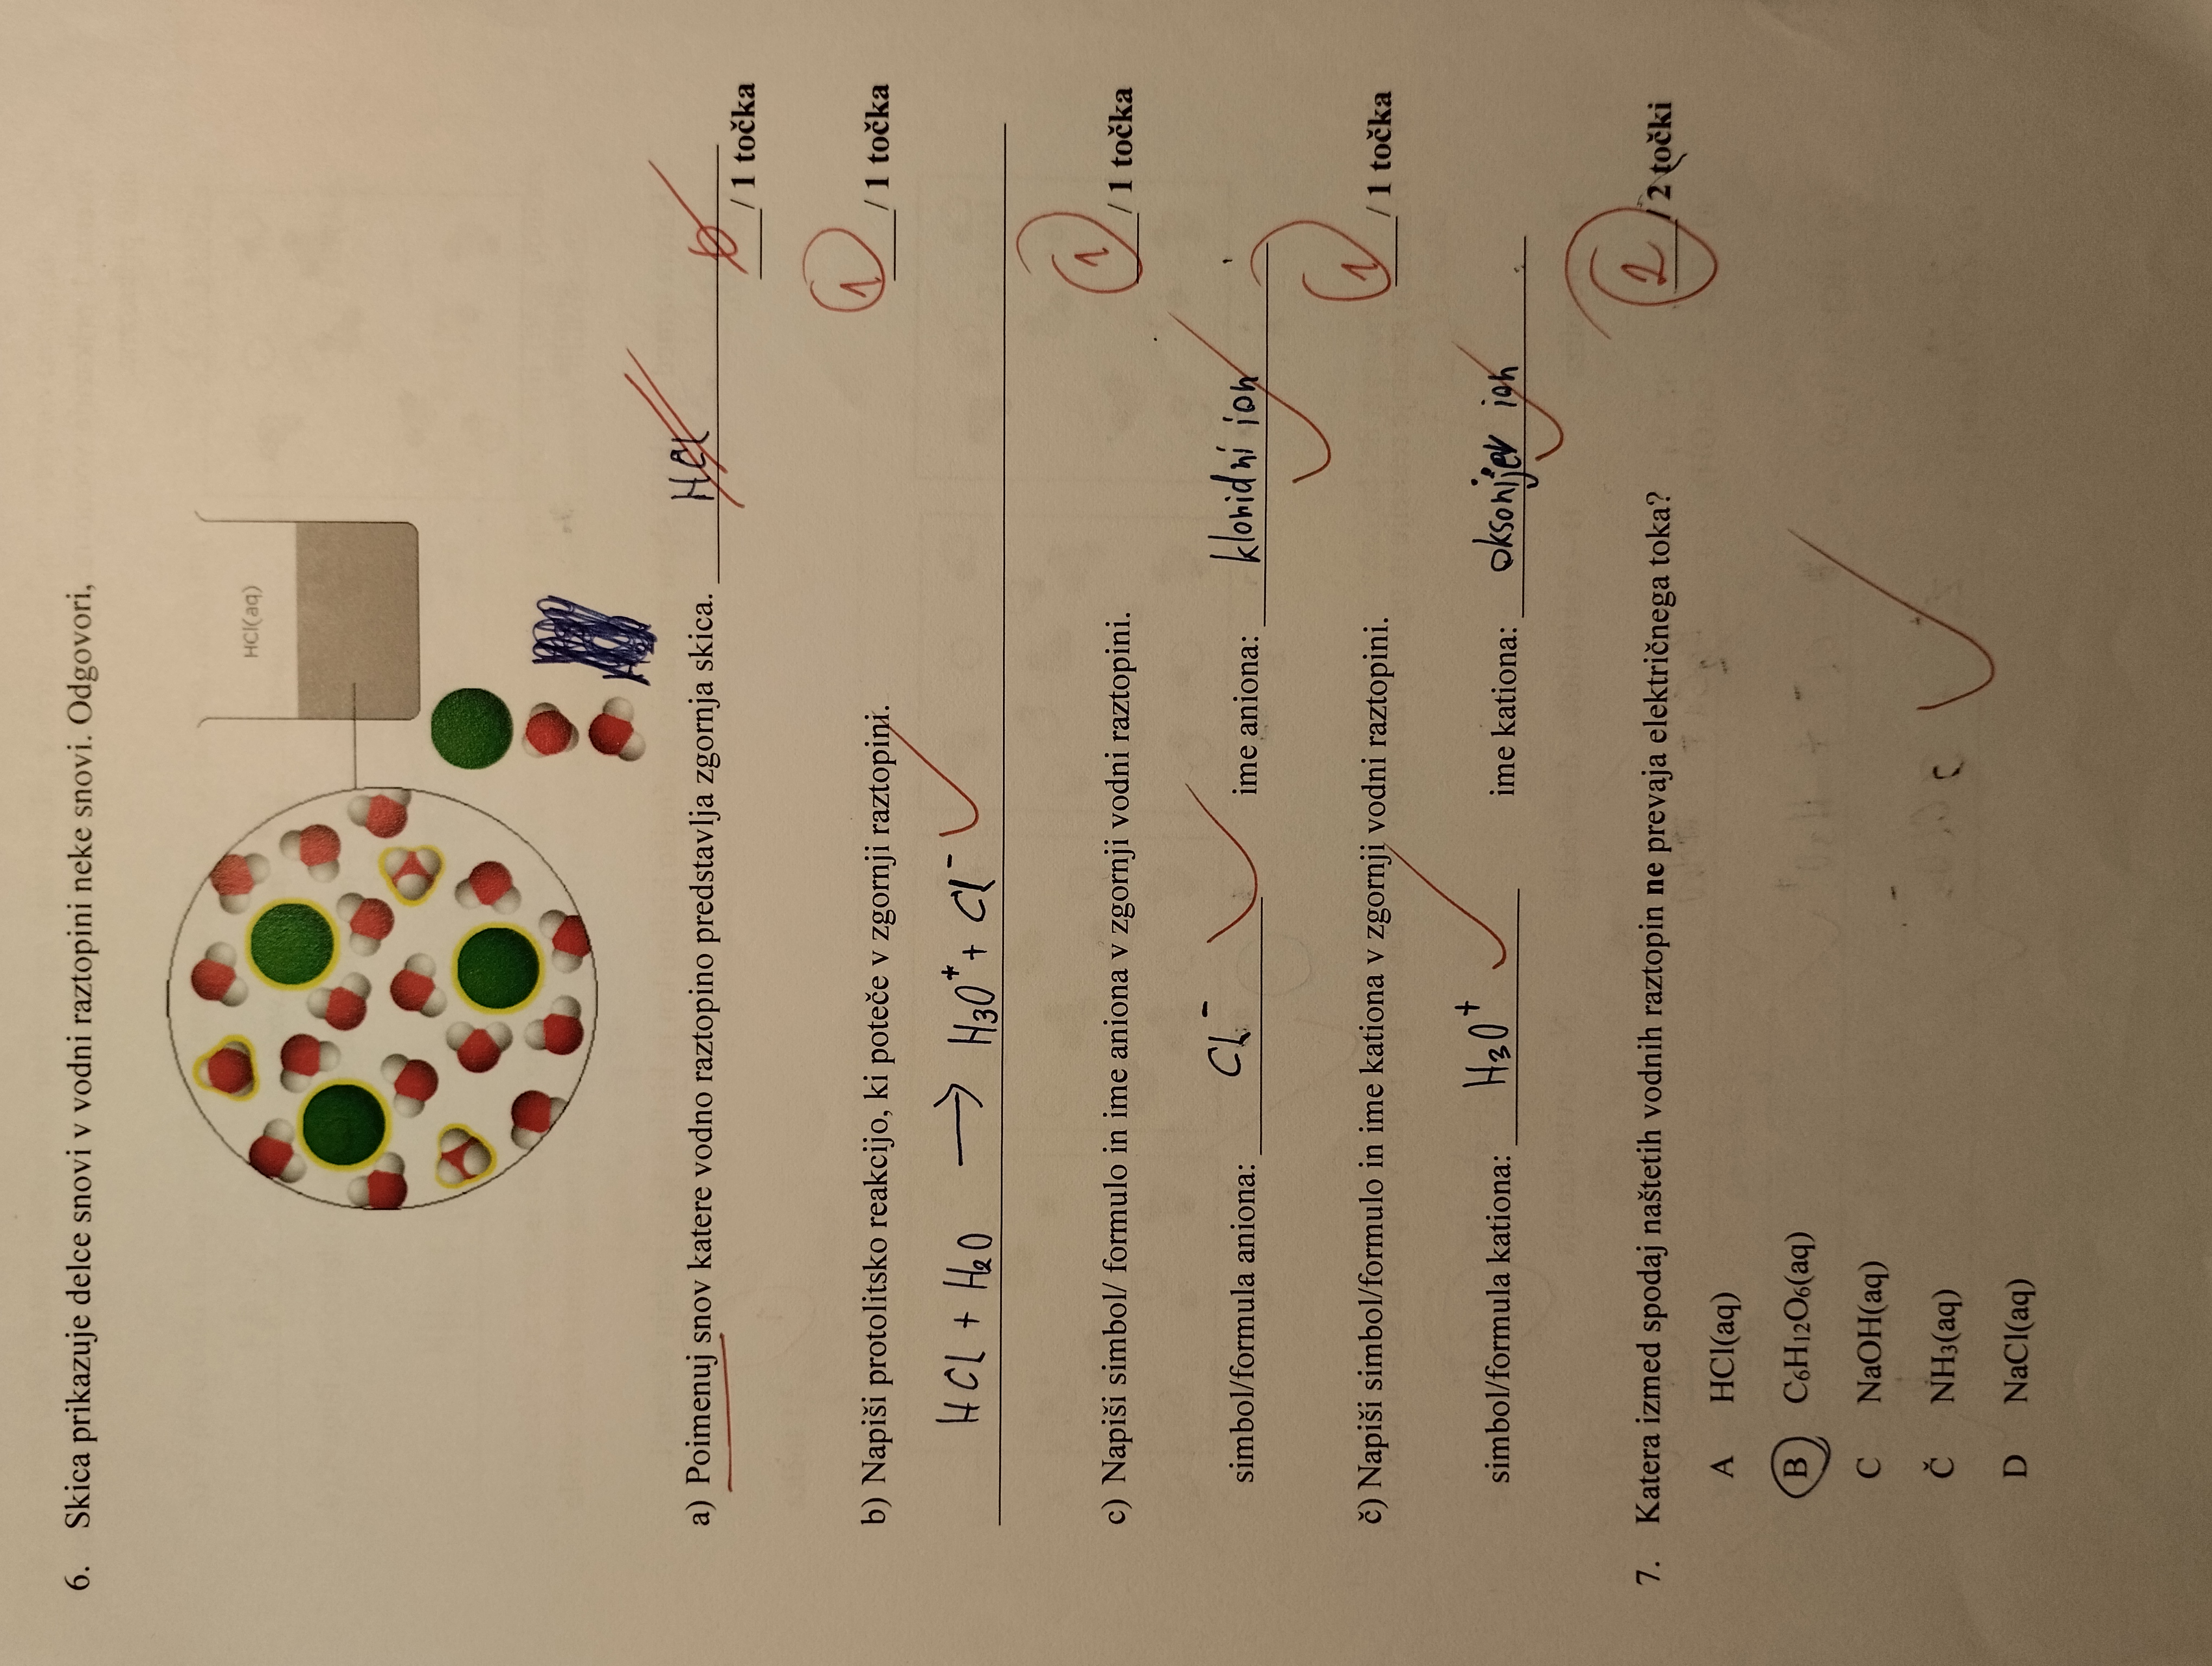 6. Skica prikazuje delce snovi v vodni raztopini neke snovi. Odgovori,
HCl(aq)
a) Poimenuj snov katere vodno raztopino predstavlja zgornja skica. HCl
0 / 1 točka
b) Napiši protolitsko reakcijo, ki poteče v zgornji raztopini. 1 / 1 točka
HCl + H₂O → H₃O⁺ + Cl⁻
c) Napiši simbol/ formulo in ime aniona v zgornji vodni raztopini. 1 / 1 točka
simbol/formula aniona: Cl⁻ ime aniona: kloridni ion
č) Napiši simbol/formulo in ime kationa v zgornji vodni raztopini. 1 / 1 točka
simbol/formula kationa: H₃O⁺ ime kationa: oksonijev ion
7. Katera izmed spodaj naštetih vodnih raztopin ne prevaja električnega toka? 2 / 2 točki
A HCl(aq)
B C₆H₁₂O₆(aq)
C NaOH(aq)
Č NH₃(aq)
D NaCl(aq)